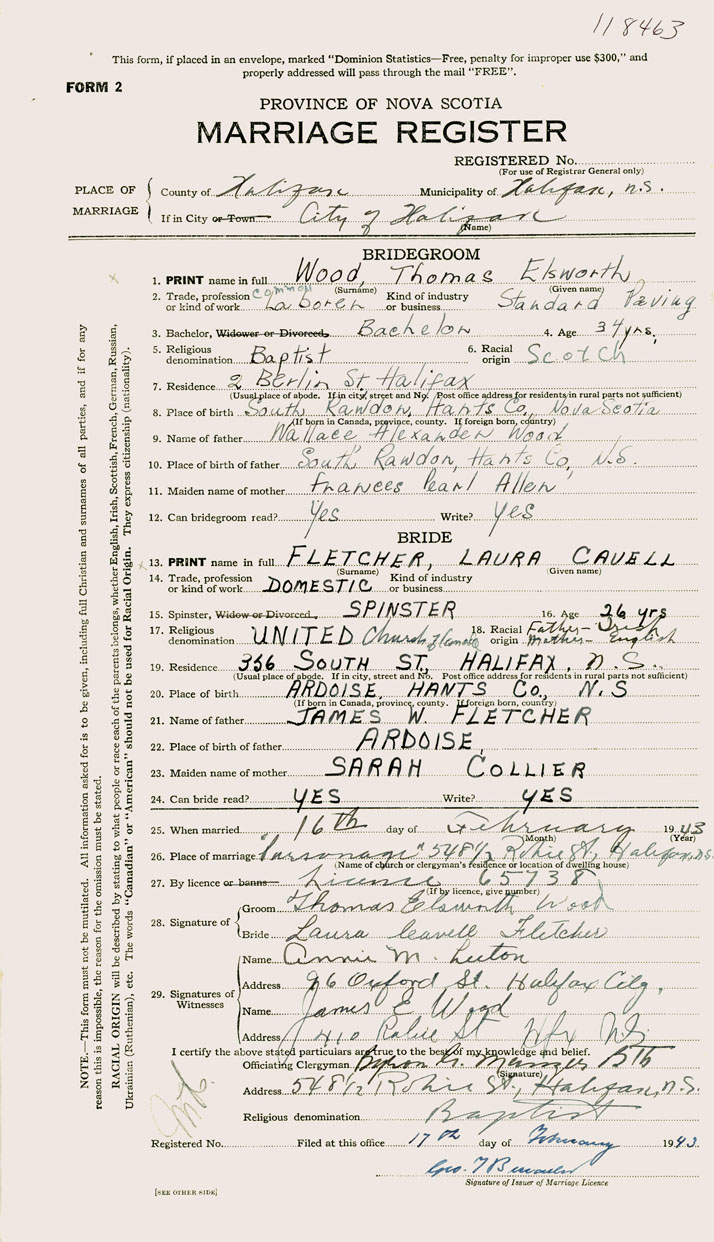 118463
This form, if placed in an envelope, marked "Dominion Statistics—Free, penalty for improper use $300," and
properly addressed will pass through the mail "FREE".
FORM 2
PROVINCE OF NOVA SCOTIA
MARRIAGE REGISTER
REGISTERED No.
(For use of Registrar General only)
PLACE OF MARRIAGE
County of Halifax Municipality of Halifax, N.S.
If in City or Town— City of Halifax
(Name)
BRIDEGROOM
1. PRINT name in full Wood, Thomas Elsworth
(Surname) (Given name)
2. Trade, profession or kind of work common Laborer Kind of industry or business Standard Paving
3. Bachelor, Widower or Divorced, Bachelor 4. Age 34 yrs,
5. Religious denomination Baptist 6. Racial origin Scotch
7. Residence 2 Berlin St. Halifax
(Usual place of abode. If in city, street and No. Post office address for residents in rural parts not sufficient)
8. Place of birth South Rawdon, Hants Co., Nova Scotia
(If born in Canada, province, county. If foreign born, country)
9. Name of father Wallace Alexander Wood
10. Place of birth of father South Rawdon, Hants Co, N.S.
11. Maiden name of mother Frances Pearl Allen
12. Can bridegroom read? Yes Write? Yes
BRIDE
13. PRINT name in full FLETCHER, LAURA CAVELL
(Surname) (Given name)
14. Trade, profession or kind of work DOMESTIC Kind of industry or business
15. Spinster, Widow or Divorced, SPINSTER 16. Age 26 yrs
17. Religious denomination UNITED Church of Canada 18. Racial origin Father— Irish Mother— English
19. Residence 356 SOUTH ST., HALIFAX, N.S.
(Usual place of abode. If in city, street and No. Post office address for residents in rural parts not sufficient)
20. Place of birth ARDOISE, HANTS Co., N.S
(If born in Canada, province, county. If foreign born, country)
21. Name of father JAMES W. FLETCHER
22. Place of birth of father ARDOISE,
23. Maiden name of mother SARAH COLLIER
24. Can bride read? YES Write? YES
25. When married 16th day of February 1943
(Month) (Year)
26. Place of marriage "Parsonage" 548½ Robie St., Halifax, N.S.
(Name of church or clergyman's residence or location of dwelling house)
27. By licence or banns— License 65738
(If by licence, give number)
28. Signature of
Groom Thomas Elsworth Wood
Bride Laura Cavell Fletcher
29. Signatures of Witnesses
Name Annie M.
Address 96 Oxford St. Halifax City,
Name James E Wood
Address 410 Robie St Hfx N.S.
I certify the above stated particulars are true to the best of my knowledge and belief.
Officiating Clergyman BTh
(Signature)
Address 548½ Robie St., Halifax, N.S.
Religious denomination Baptist
Registered No. Filed at this office 17th day of February 1943
Geo.
Signature of Issuer of Marriage Licence
[SEE OTHER SIDE]
NOTE.—This form must not be mutilated. All information asked for is to be given, including full Christian and surnames of all parties, and if for any
reason this is impossible, the reason for the omission must be stated.
RACIAL ORIGIN will be described by stating to what people or race each of the parents belongs, whether English, Irish, Scottish, French, German, Russian,
Ukrainian (Ruthenian), etc. The words "Canadian" or "American" should not be used for Racial Origin. They express citizenship (nationality).